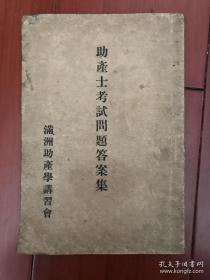 助產士考試問題答案集
滿洲助產學講習會
孔夫子旧书网